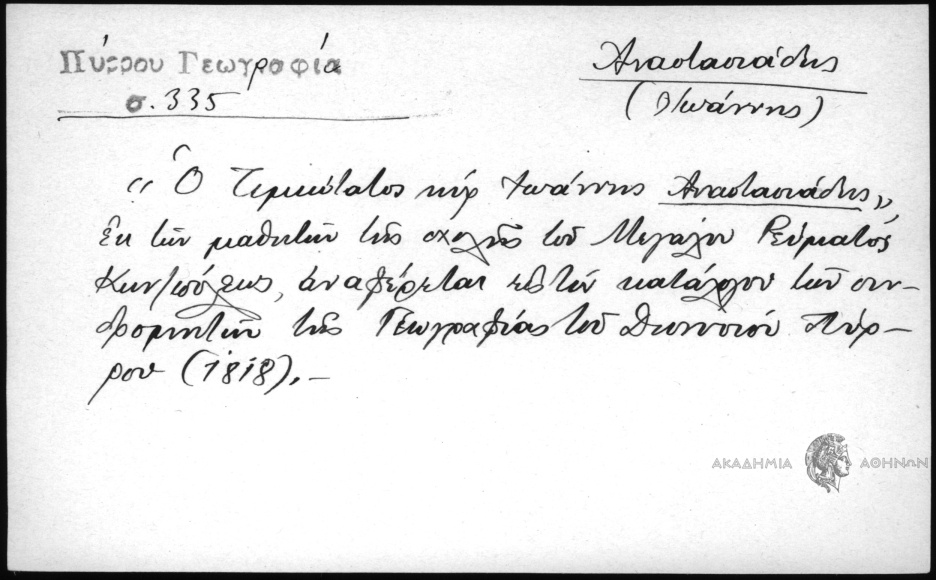 Πύρρου Γεωγραφία
σ. 335
Ἀναστασιάδης
(Ἰωάννης)
"Ὁ Τιμιώτατος κύρ Ἰωάννης Ἀναστασιάδης,,
ἐκ τῶν μαθητῶν τῆς σχολῆς τοῦ Μεγάλου Ρεύματος
Κων/πόλεως, ἀναφέρεται εἰς τὸν κατάλογον τῶν συν-
δρομητῶν τῆς Γεωγραφίας τοῦ Διονυσίου Πύρ-
ρου (1818).–
ΑΚΑΔΗΜΙΑ ΑΘΗΝΩΝ